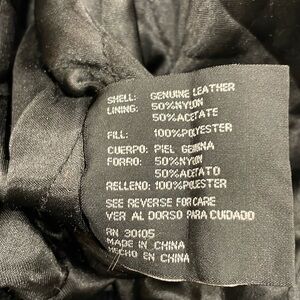 SHELL: GENUINE LEATHER
LINING: 50%NYLON
50%ACETATE
FILL: 100%POLYESTER
CUERPO: PIEL GENUINA
FORRO: 50%NYLON
50%ACETATO
RELLENO: 100%POLIESTER
SEE REVERSE FOR CARE
VER AL DORSO PARA CUIDADO
RN 30105
MADE IN CHINA
HECHO EN CHINA